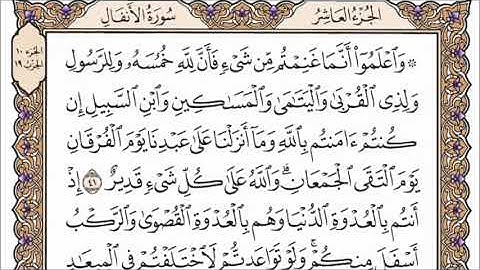 الجزء العاشر
سورة الأنفال
الجزء ١٠
الحزب ١٩
۞ وَٱعْلَمُوٓا۟ أَنَّمَا غَنِمْتُم مِّن شَىْءٍ فَأَنَّ لِلَّهِ خُمُسَهُۥ وَلِلرَّسُولِ
وَلِذِى ٱلْقُرْبَىٰ وَٱلْيَتَٰمَىٰ وَٱلْمَسَٰكِينِ وَٱبْنِ ٱلسَّبِيلِ إِن
كُنتُمْ ءَامَنتُم بِٱللَّهِ وَمَآ أَنزَلْنَا عَلَىٰ عَبْدِنَا يَوْمَ ٱلْفُرْقَانِ
يَوْمَ ٱلْتَقَى ٱلْجَمْعَانِ ۗ وَٱللَّهُ عَلَىٰ كُلِّ شَىْءٍ قَدِيرٌ ٤١ إِذْ
أَنتُم بِٱلْعُدْوَةِ ٱلدُّنْيَا وَهُم بِٱلْعُدْوَةِ ٱلْقُصْوَىٰ وَٱلرَّكْبُ
أَسْفَلَ مِنكُمْ ۚ وَلَوْ تَوَاعَدتُّمْ لَٱخْتَلَفْتُمْ فِى ٱلْمِيعَٰدِ